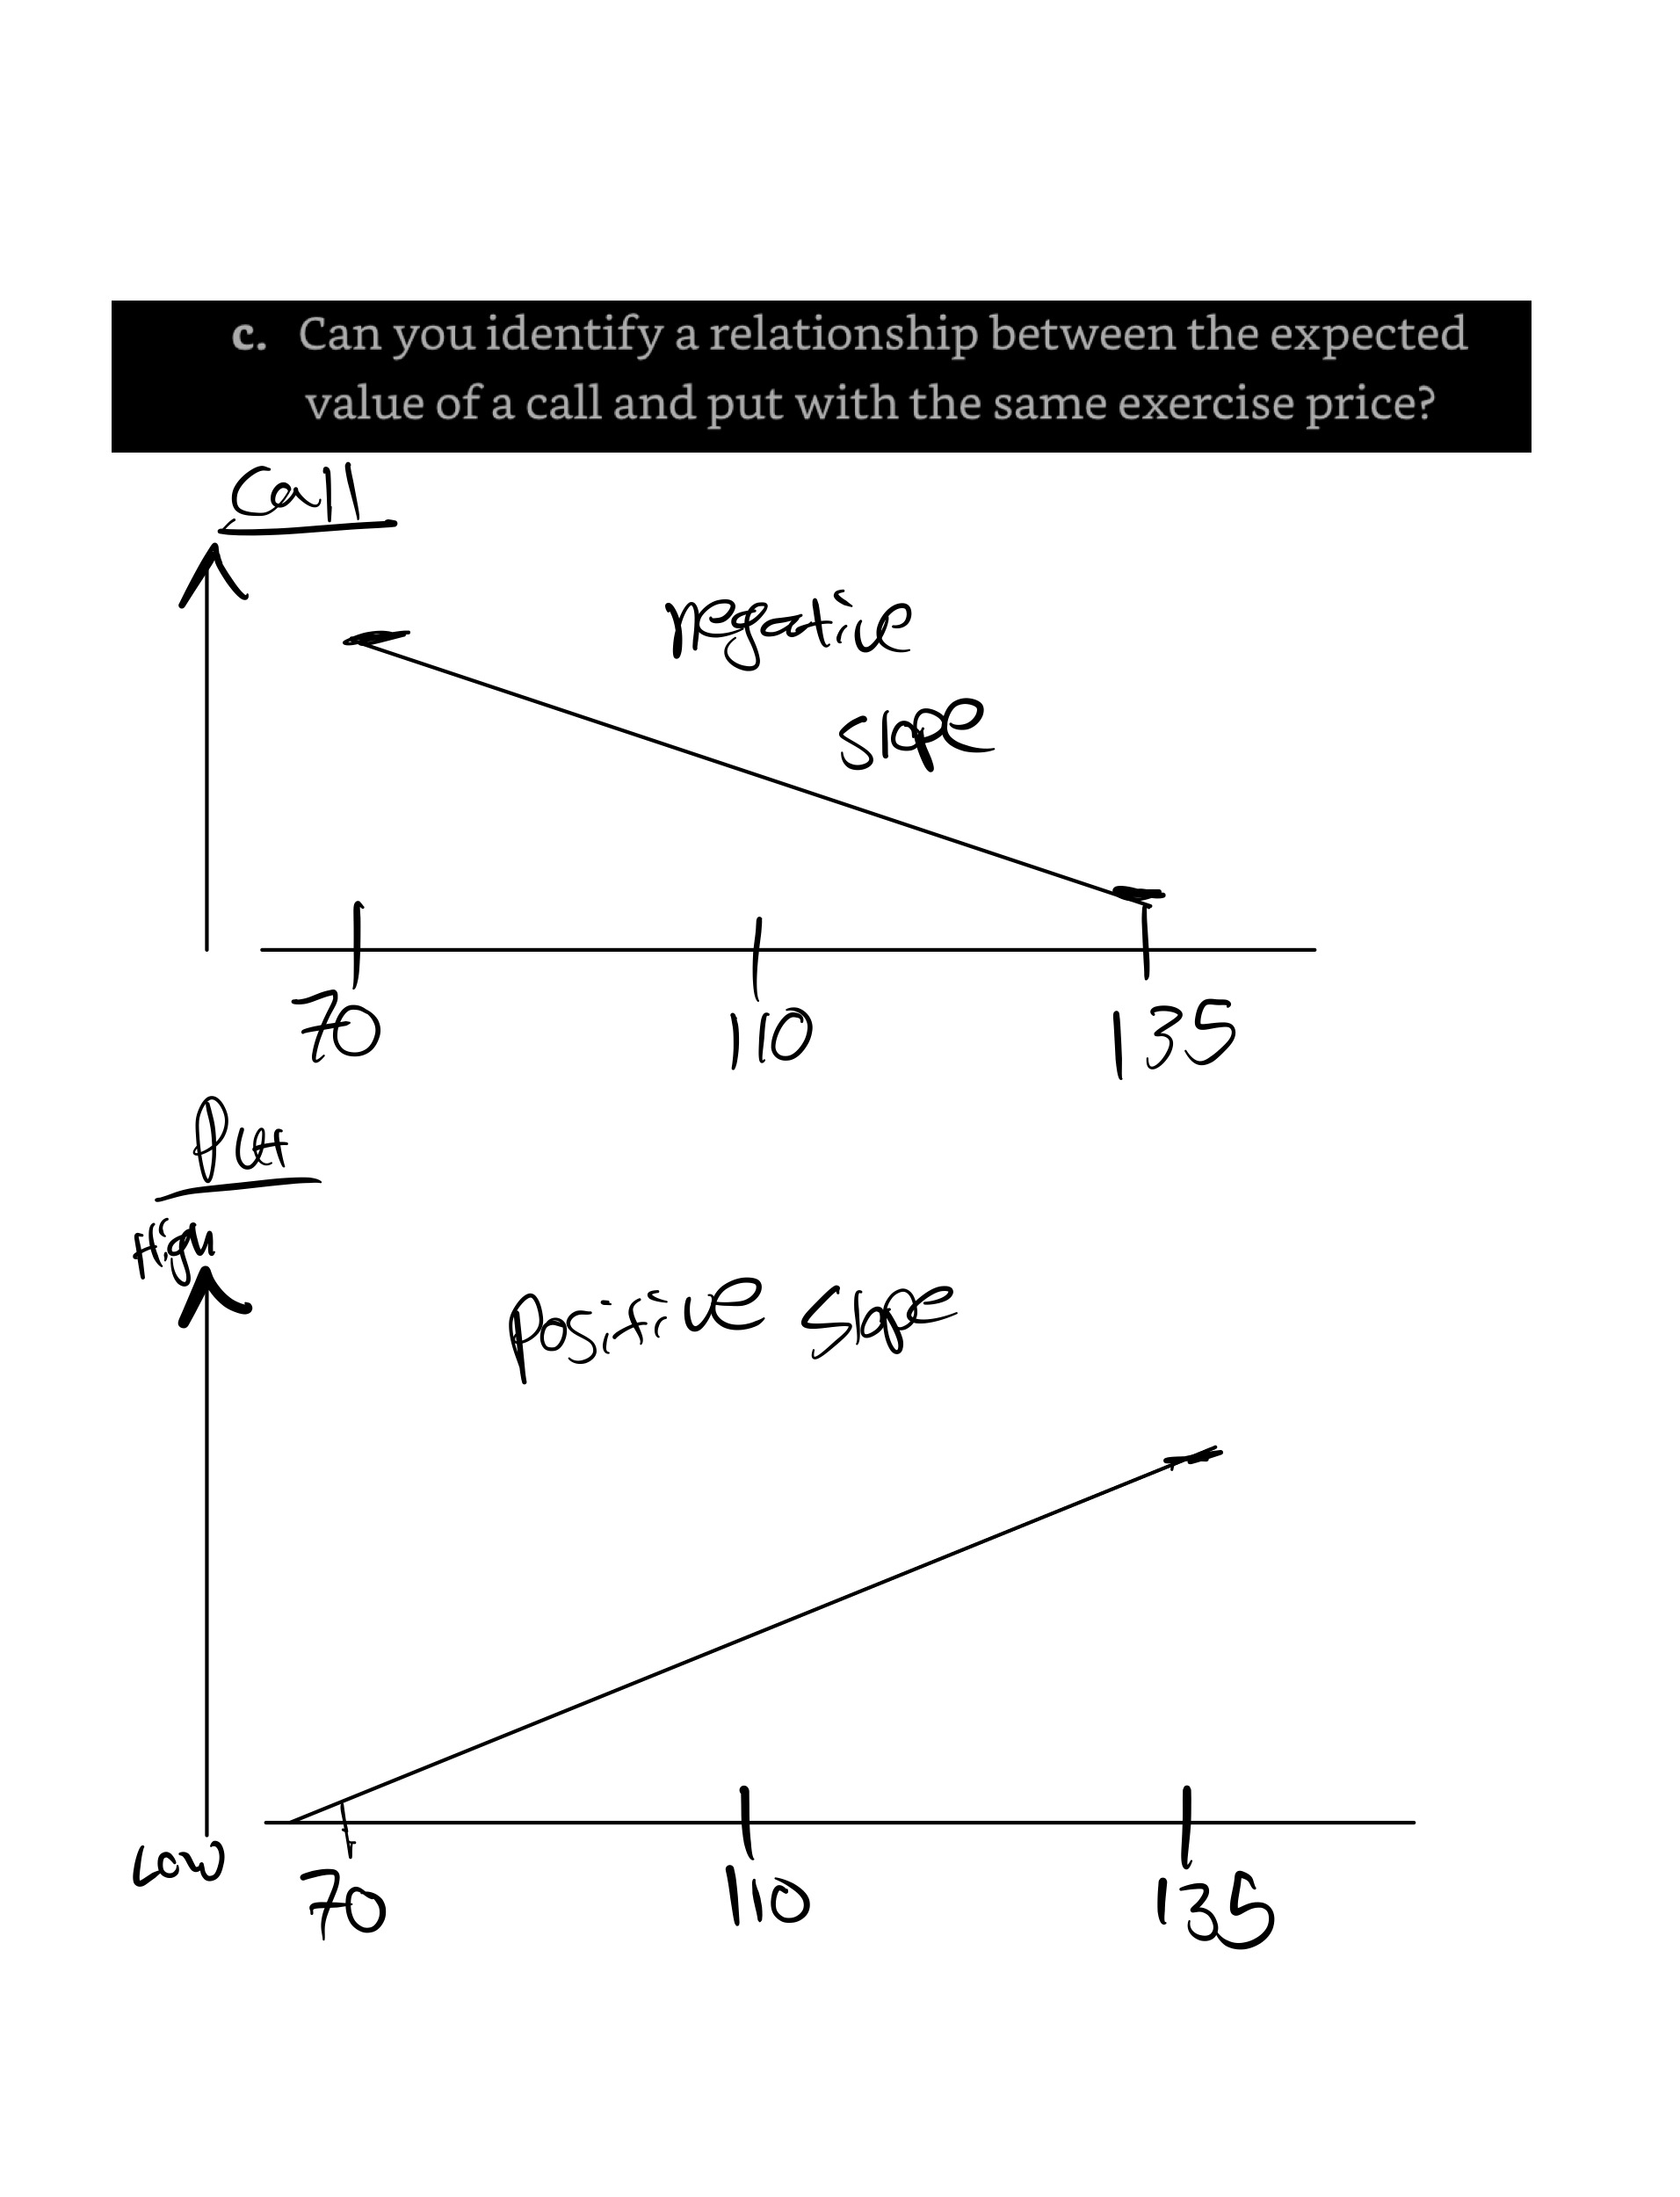 c. Can you identify a relationship between the expected
value of a call and put with the same exercise price?
Call
negative
slope
70
110
135
Put
High
positive slope
Low
70
110
135